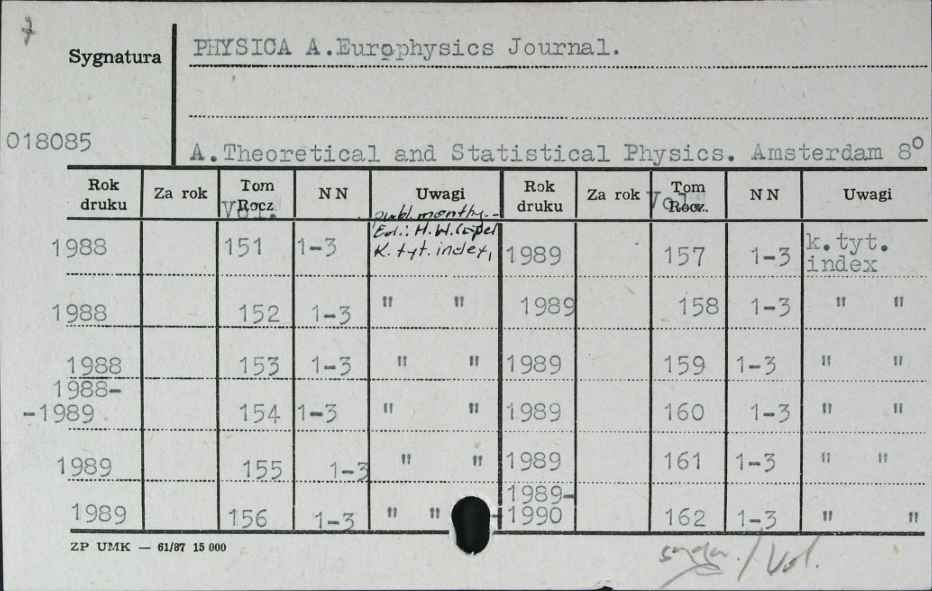 7
Sygnatura
PHYSICA A.Europhysics Journal.
018085
A.Theoretical and Statistical Physics. Amsterdam 8º
Rok druku Za rok Tom Rocz. Vol. N N Uwagi Rok druku Za rok Tom Rocz. Vol. N N Uwagi
publ. monthy.-
Ed.: H.W. Capel
K. tyt. index,
1988 151 1-3 1989 157 1-3 k.tyt. index
1988 152 1-3 " " 1989 158 1-3 " "
1988 153 1-3 " " 1989 159 1-3 " "
1988-
-1989. 154 1-3 " " 1989 160 1-3 " "
1989 155 1-3 " " 1989 161 1-3 " "
1989 156 1-3 " " 1989-
-1990 162 1-3 " "
ZP UMK — 61/87 15 000
/ Vol.